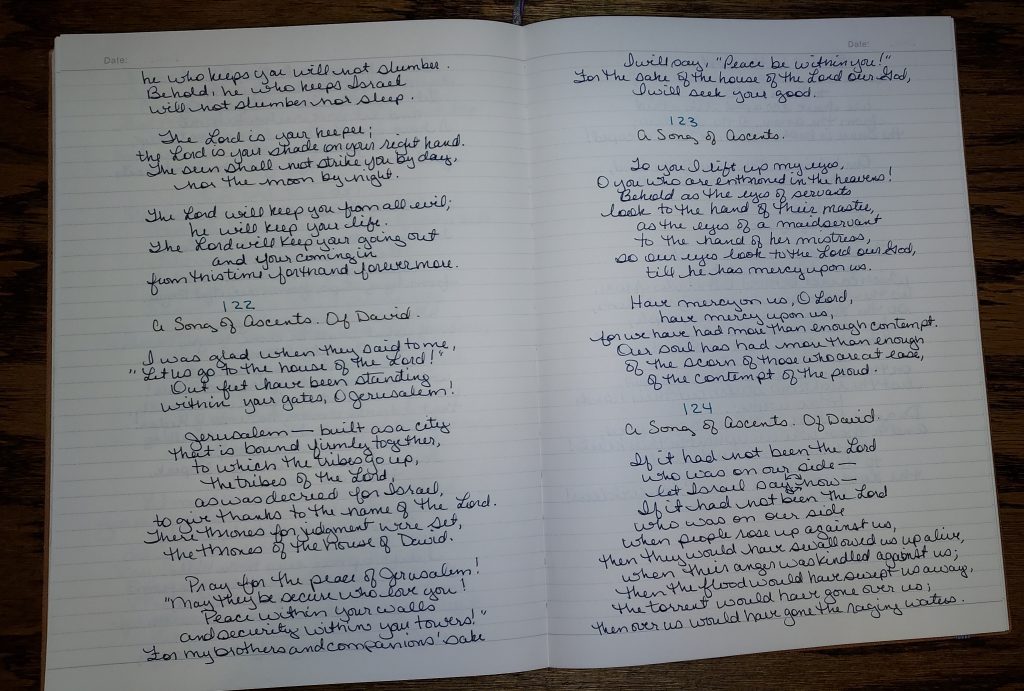 Date:
he who keeps you will not slumber.
Behold, he who keeps Israel
will not slumber nor sleep.
The Lord is your keeper;
the Lord is your shade on your right hand.
The sun shall not strike you by day,
nor the moon by night.
The Lord will keep you from all evil;
he will keep your life.
The Lord will keep your going out
and your coming in
from this time forth and forevermore.
122
A Song of Ascents. Of David.
I was glad when they said to me,
"Let us go to the house of the Lord!"
Our feet have been standing
within your gates, O Jerusalem!
Jerusalem — built as a city
that is bound firmly together,
to which the tribes go up,
the tribes of the Lord,
as was decreed for Israel,
to give thanks to the name of the Lord.
There thrones for judgment were set,
the thrones of the house of David.
Pray for the peace of Jerusalem!
"May they be secure who love you!
Peace within your walls
and security within you towers!"
For my brothers and companions' sake
Date:
I will say, "Peace be within you!"
For the sake of the house of the Lord our God,
I will seek your good.
123
A Song of Ascents.
To you I lift up my eyes,
O you who are enthroned in the heavens!
Behold as the eyes of servants
look to the hand of their master,
as the eyes of a maidservant
to the hand of her mistress,
so our eyes look to the Lord our God,
till he has mercy upon us.
Have mercy on us, O Lord,
have mercy upon us,
for we have had more than enough contempt.
Our soul has had more than enough
of the scorn of those who are at ease,
of the contempt of the proud.
124
A Song of Ascents. Of David.
If it had not been the Lord
who was on our side —
let Israel say now —
If it had not been the Lord
who was on our side
when people rose up against us,
then they would have swallowed us up alive,
when their anger was kindled against us;
then the flood would have swept us away,
the torrent would have gone over us;
then over us would have gone the raging waters.